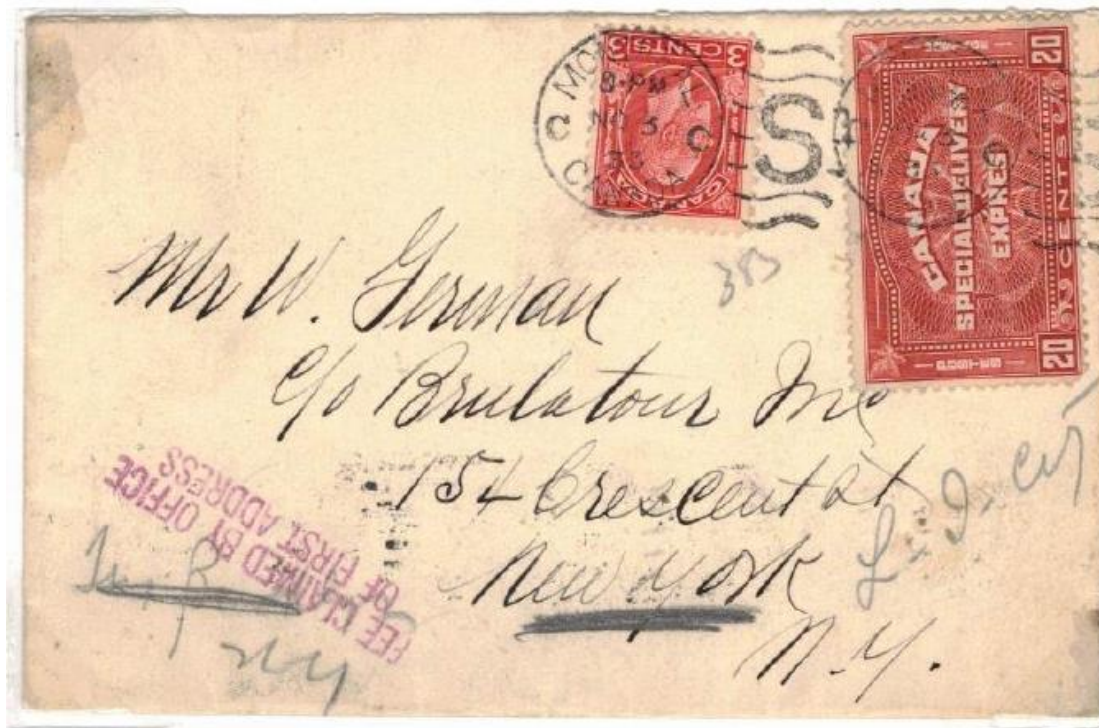 3 CENTS 3
CANADA
8-PM
NO 3
33
CANADA
S
20
CANADA
SPECIAL DELIVERY
EXPRES
20 CENTS 20
383
Mr W. German
c/o Brulatour Inc
154 Crescent St
New York
N.Y.
L. I. City
FEE CLAIMED BY OFFICE
OF FIRST ADDRESS
N.Y